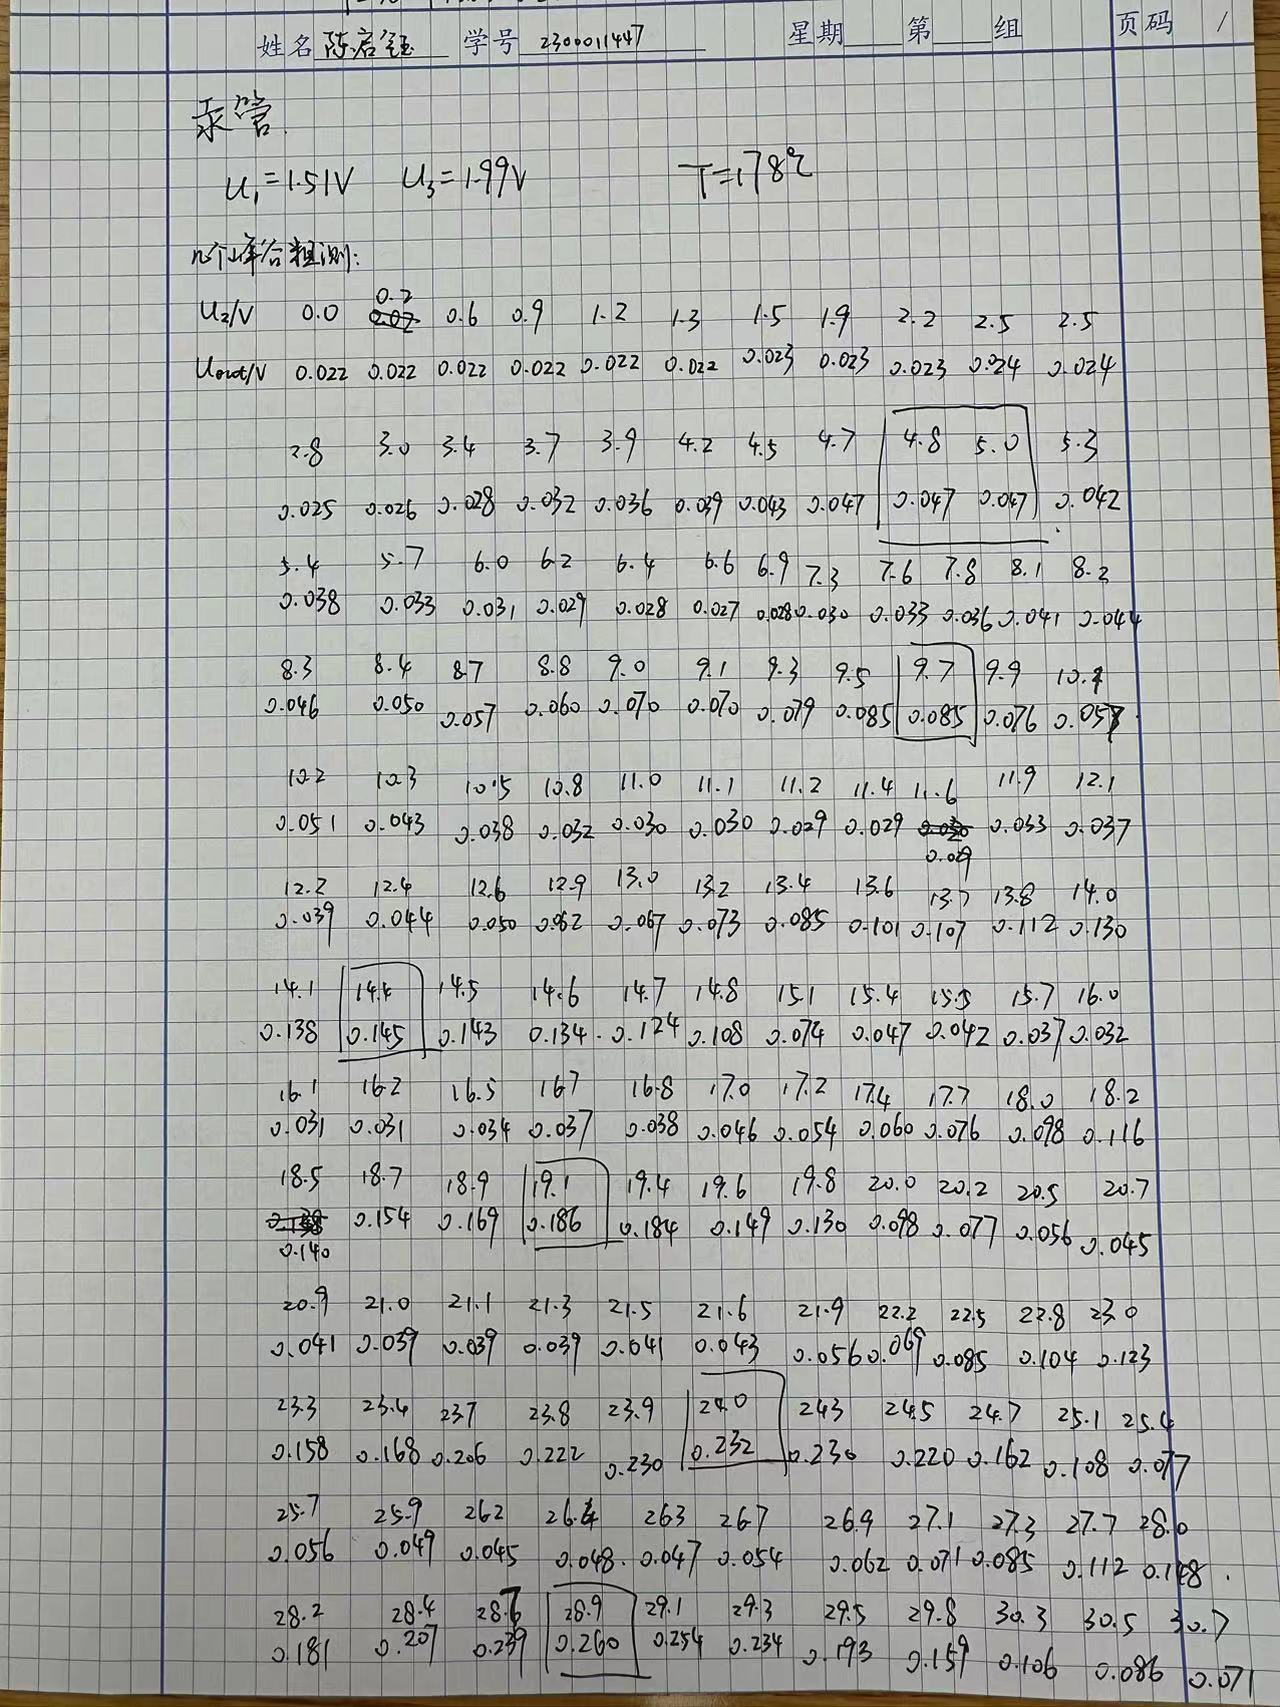 姓名 陈启钰 学号 2300011447 星期 第 组 页码 1
汞管
U₁=1.51V U₃=1.99V T=178℃
n个峰谷粗测:
0.2
U₂/V 0.0 0.6 0.9 1.2 1.3 1.5 1.9 2.2 2.5 2.5
Uout/V 0.022 0.022 0.022 0.022 0.022 0.022 0.023 0.023 0.023 0.024 0.024
2.8 3.0 3.4 3.7 3.9 4.2 4.5 4.7 4.8 5.0 5.3
0.025 0.026 0.028 0.032 0.036 0.039 0.043 0.047 0.047 0.047 0.042
5.4 5.7 6.0 6.2 6.4 6.6 6.9 7.3 7.6 7.8 8.1 8.2
0.038 0.033 0.031 0.029 0.028 0.027 0.028 0.030 0.033 0.036 0.041 0.044
8.3 8.4 8.7 8.8 9.0 9.1 9.3 9.5 9.7 9.9 10.1
0.046 0.050 0.057 0.060 0.070 0.070 0.079 0.085 0.085 0.076 0.057
10.2 10.3 10.5 10.8 11.0 11.1 11.2 11.4 11.6 11.9 12.1
0.051 0.043 0.038 0.032 0.030 0.030 0.029 0.029 0.030 0.033 0.037
0.029
12.2 12.4 12.6 12.9 13.0 13.2 13.4 13.6 13.7 13.8 14.0
0.039 0.044 0.050 0.062 0.067 0.073 0.085 0.101 0.107 0.112 0.130
14.1 14.4 14.5 14.6 14.7 14.8 15.1 15.4 15.5 15.7 16.0
0.138 0.145 0.143 0.134 0.124 0.108 0.074 0.047 0.042 0.037 0.032
16.1 16.2 16.5 16.7 16.8 17.0 17.2 17.4 17.7 18.0 18.2
0.031 0.031 0.034 0.037 0.038 0.046 0.054 0.060 0.076 0.098 0.116
18.5 18.7 18.9 19.1 19.4 19.6 19.8 20.0 20.2 20.5 20.7
0.154 0.169 0.186 0.184 0.149 0.130 0.098 0.077 0.056 0.045
0.140
20.9 21.0 21.1 21.3 21.5 21.6 21.9 22.2 22.5 22.8 23.0
0.041 0.039 0.039 0.039 0.041 0.043 0.056 0.069 0.085 0.104 0.123
23.3 23.4 23.7 23.8 23.9 24.0 24.3 24.5 24.7 25.1 25.4
0.158 0.168 0.206 0.222 0.230 0.232 0.230 0.220 0.162 0.108 0.077
25.7 25.9 26.2 26.4 26.3 26.7 26.9 27.1 27.3 27.7 28.0
0.056 0.049 0.045 0.048 0.047 0.054 0.062 0.071 0.085 0.112 0.148
28.2 28.4 28.7 28.9 29.1 29.3 29.5 29.8 30.3 30.5 30.7
0.181 0.207 0.239 0.260 0.254 0.234 0.193 0.159 0.106 0.086 0.071